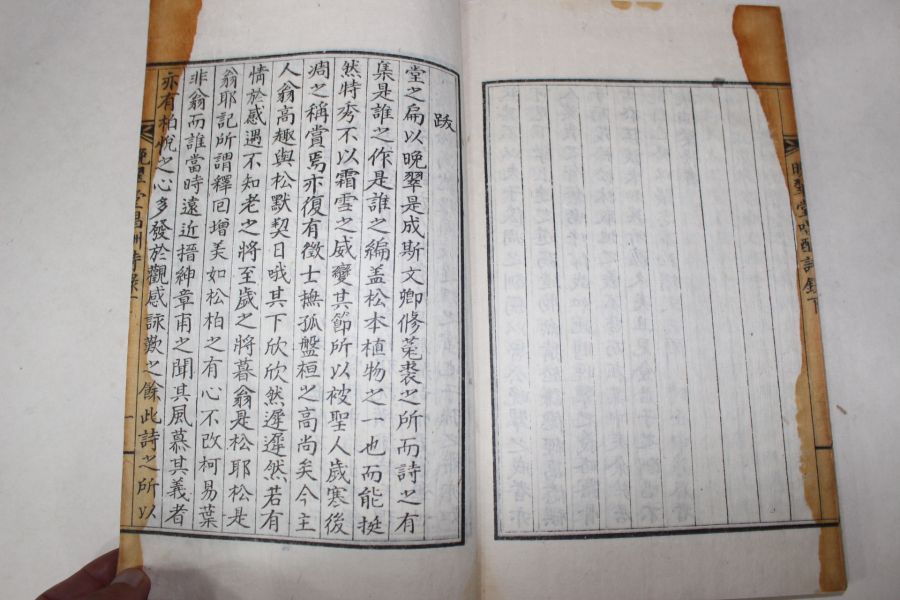 跋
堂之扁以晩翠是成斯文卿修菟裘之所而詩之有
集是誰之作是誰之編盖松本植物之一也而能挺
然特秀不以霜雪之威變其節所以被聖人歲寒後
凋之稱賞焉亦復有徵士撫孤盤桓之高尚矣今主
人翁高趣與松默契日哦其下欣欣然遲遲然若有
情於感遇不知老之將至歲之將暮翁是松耶松是
翁耶記所謂釋回增美如松柏之有心不改柯易葉
非翁而誰當時遠近搢紳章甫之聞其風慕其義者
亦有柏悅之心多發於觀感詠歎之餘此詩之所以
晩翠堂唱酬詩錄下
晩翠堂唱酬詩錄下